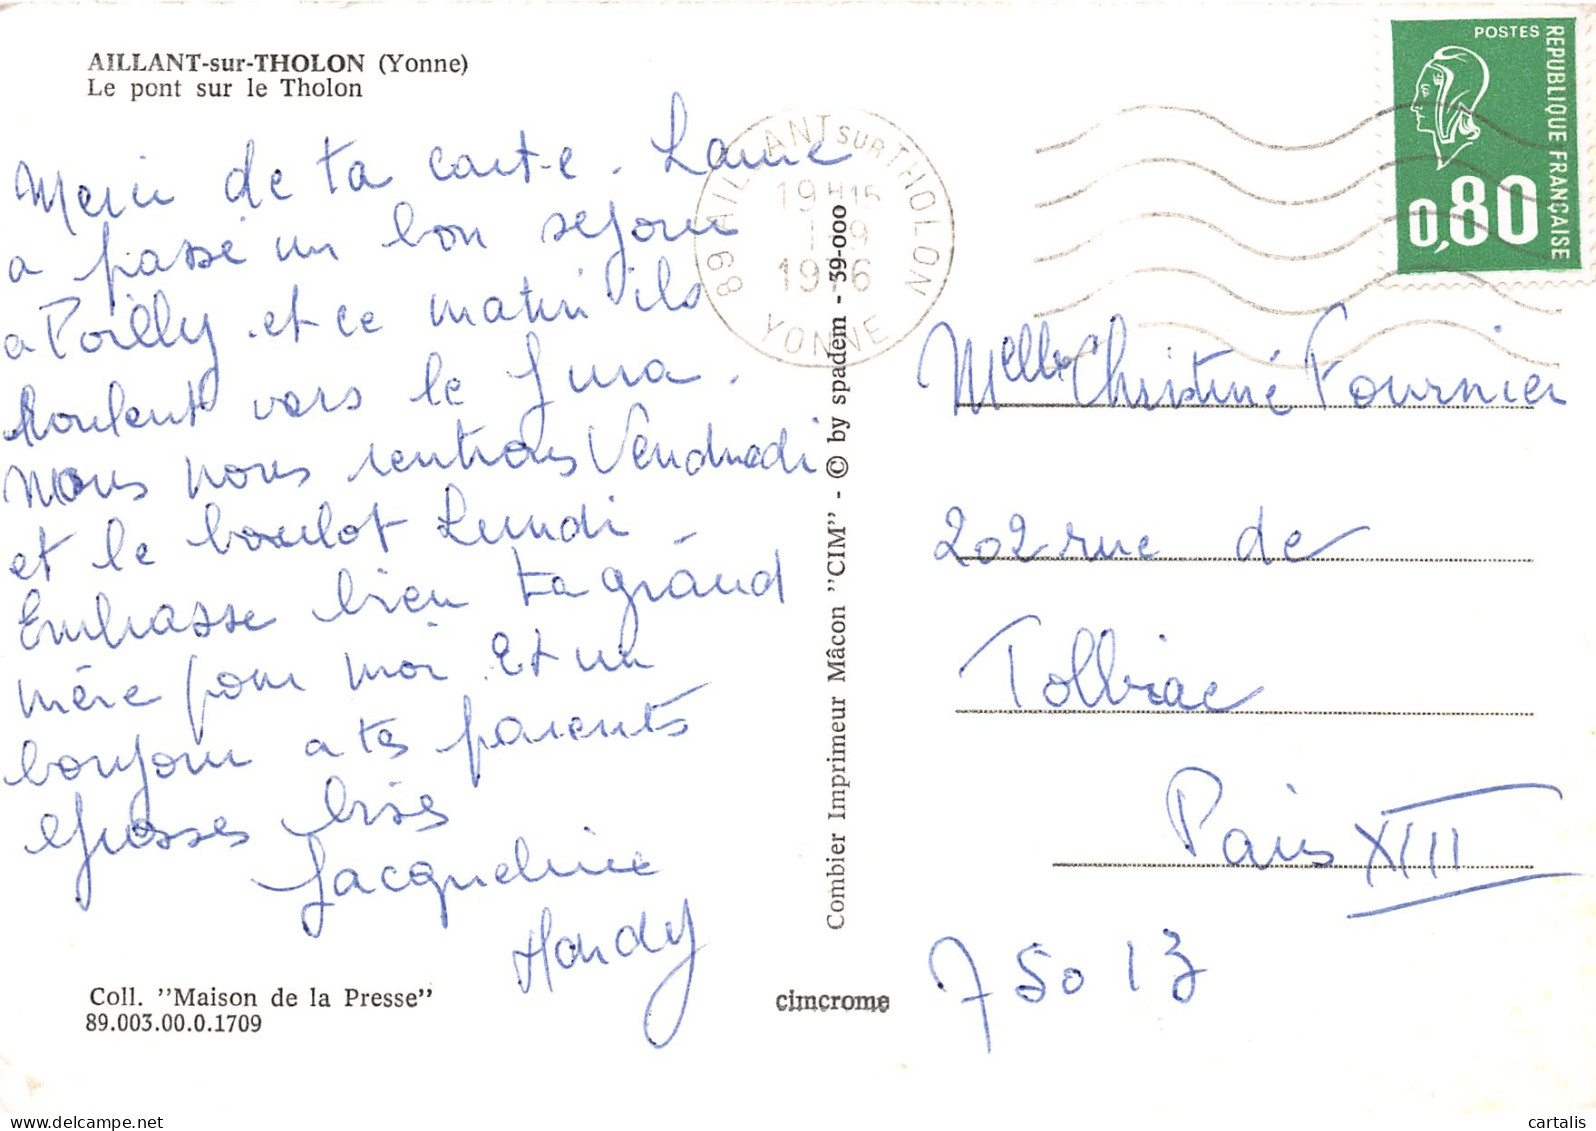 AILLANT-sur-THOLON (Yonne)
Le pont sur le Tholon
Merci de ta carte. Laure
a passé un bon sejour
a Poilly. et ce matin ils
Roulent vers le Jura.
Nous nous rentrons Vendredi
et le boulot Lundi.
Embrasse bien ta grand
mère pour moi. Et un
bonjour a tes parents
Grosses bises
Jacqueline
Hardy
Coll. "Maison de la Presse"
89.003.00.0.1709
Combier Imprimeur Mâcon "CIM" - © by spadem - 39-000
cimcrome
89 AILLANT SUR THOLON
19 H15
1976
YONNE
POSTES
REPUBLIQUE FRANÇAISE
0,80
Melle Christine Fournier
202 rue de
Tolbiac
Paris XIII
75013
cartalis
www.delcampe.net